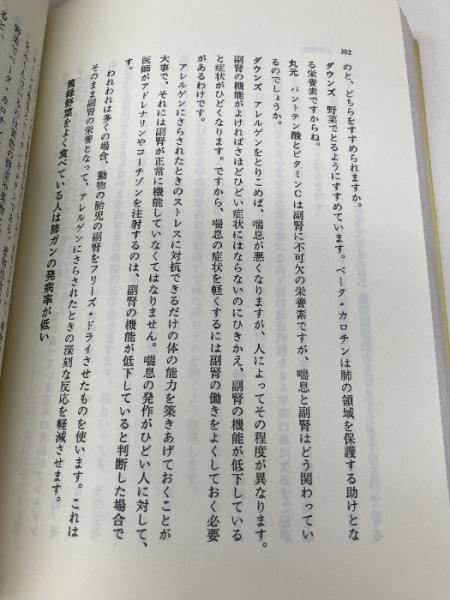 302
のと、どちらをすすめられますか。
ダウンズ　野菜でとるようにすすめています。ベータ・カロチンは肺の領域を保護する助けとな
る栄養素ですからね。
丸元　パントテン酸とビタミンCは副腎に不可欠の栄養素ですが、喘息と副腎はどう関わってい
るのでしょうか。
ダウンズ　アレルゲンをとりこめば、喘息が悪くなりますが、人によってその程度が異なります。
副腎の機能がよければさほどひどい症状にはならないのにひきかえ、副腎の機能が低下している
と症状がひどくなります。ですから、喘息の症状を軽くするには副腎の働きをよくしておく必要
があるわけです。
アレルゲンにさらされたときのストレスに対抗できるだけの体の能力を築きあげておくことが
大事で、それには副腎が正常に機能していなくてはなりません。喘息の発作がひどい人に対して、
医師がアドレナリンやコーチゾンを注射するのは、副腎の機能が低下していると判断した場合で
す。
われわれは多くの場合、動物の胎児の副腎をフリーズ・ドライさせたものを使います。これは
そのまま副腎の栄養となって、アレルゲンにさらされたときの深刻な反応を軽減させます。
黄緑野菜をよく食べている人は肺ガンの発病率が低い